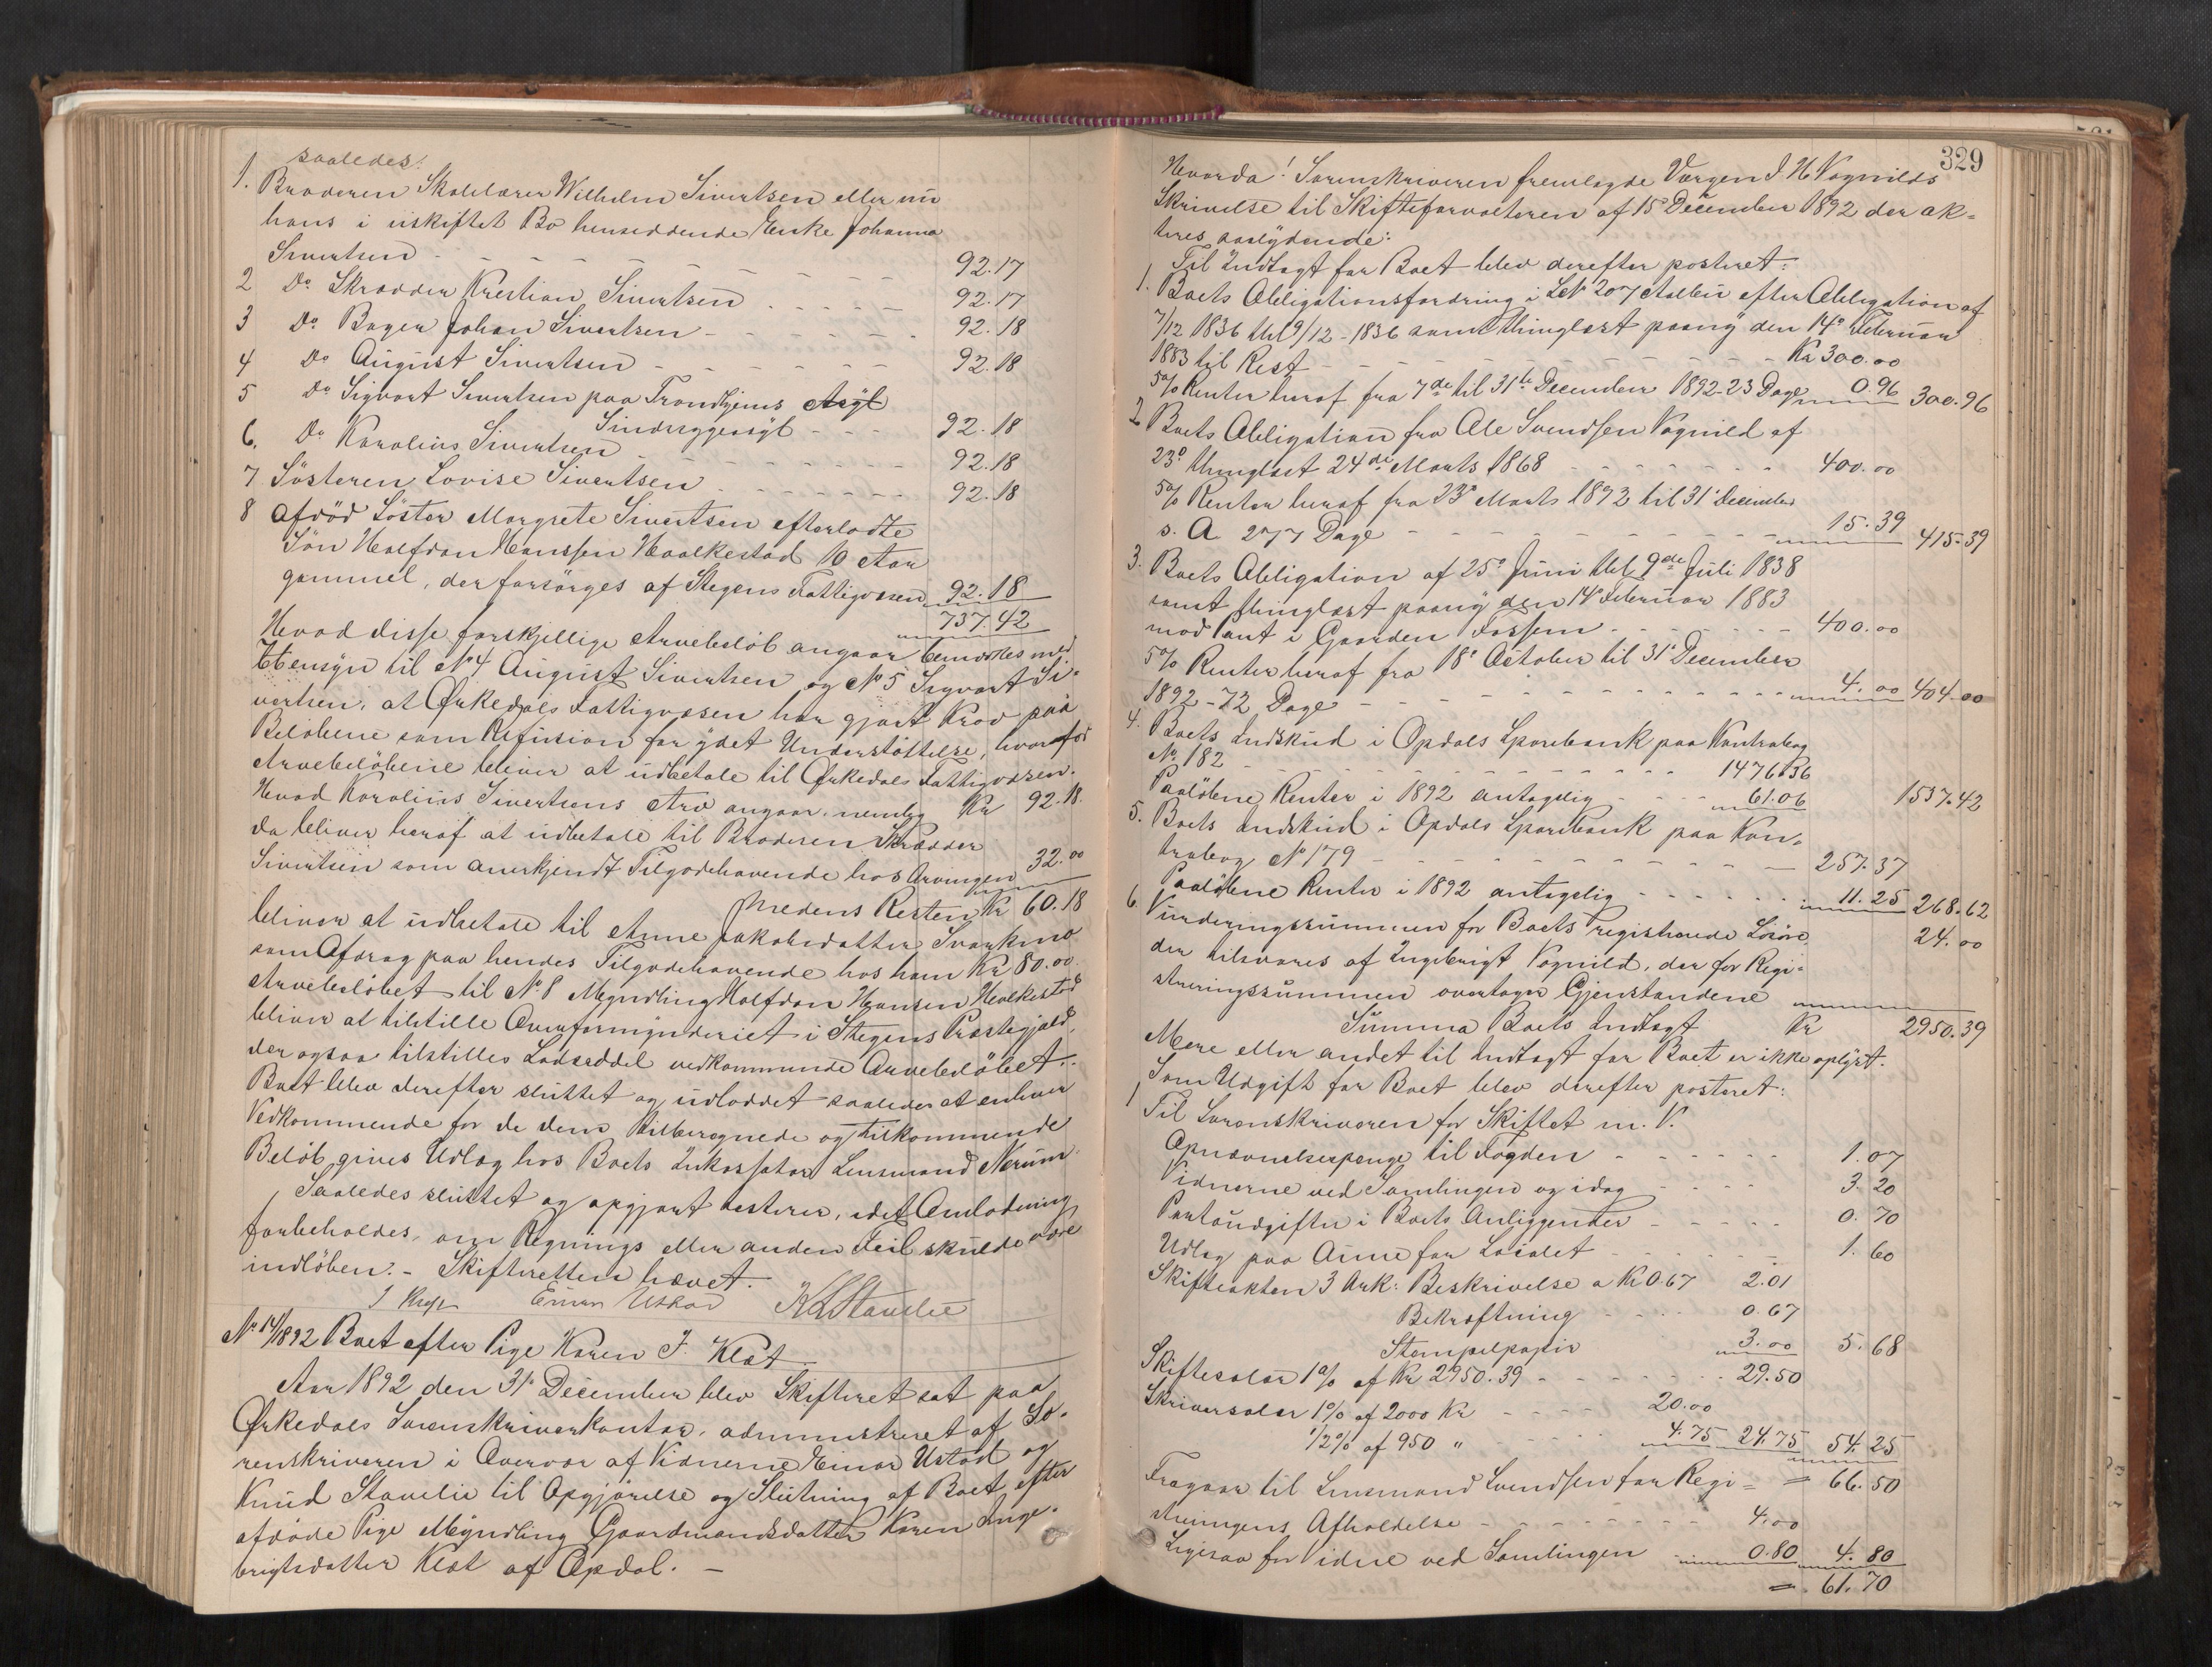 saaledes:
1. Broderen Skolelærer Wilhelm Sivertsen eller nu
hans i uskiftet Bo hensiddende Enke Johanna
Sivertsen - - - - - 92.17
2 Do Skrædder Kristian Sivertsen - - - - 92.17
3 Do Bager Johan Sivertsen - - - - 92.18
4 Do August Sivertsen - - - - - 92.18
5 Do Sigvart Sivertsen paa Trondhjems Asyl
Sindsygeasyl - - - 92.18
6. Do Karolius Sivertsen - - - - - 92.18
7 Søsteren Lovise Sivertsen - - - - - 92.18
8 Afdød Søster Margrete Sivertsen efterladte
Søn Halfdan Hanssen Haalkestad 10 Aar
gammel, der forsørges af Stegens Fattigvæsen 92.18
737.42
Hvad disse forskjellige Arvebeløb angaar bemærkes med
Hensyn til No 4 August Sivertsen og No 5 Sigvart Si-
vertsen, at Ørkedals Fattigvæsen har gjort Krav paa
Beløbene som Refusion for ydet Understøttelse, hvorfor
Arvebeløbene bliver at udbetale til Ørkedals Fattigvæsen.
Hvad Karolius Sivertsens Arv angaar, nemlig Kr 92.18.
da bliver heraf at udbetale til Broderen Skrædder
Sivertsen som anerkjendt Tilgodehavende hos Arvingen 32.00
Medens Resten Kr 60.18
bliver at udbetale til Anne Jakobsdatter Svorkmo
som Afdrag paa hendes Tilgodehavende hos ham Kr 80.00.
Arvebeløbet til No 8 Myndling Halfdan Hansen Haalkestad
bliver at tilstille Overformynderiet i Stegens Præstegjeld,
der ogsaa tilstilles Lodseddel vedkommende Arvebeløbet.
Boet blev derefter sluttet og udloddet saaledes at enhver
Vedkommende for de dem tilberegnede og tilkommende
Beløb gives Udlæg hos Boets Inkassator Lensmand Nerum.
Saaledes sluttet og opgjort testerer, idet Omlodning
forbeholdes, om Regnings eller anden Feil skulde være
indløben. - Skifteretten hævet.
Einar Ustad K L Stavelie
No 14/1892 Boet efter Pige Karen I. Klæt
Aar 1892 den 31te December blev Skifteret sat paa
Ørkedals Sorenskriverkontor, administreret af So-
renskriveren i Overvær af Vidnerne Einar Ustad og
Knud Stavelie til Opgjørelse og Slutning af Boet efter
afdøde Pige Myndling Gaardmandsdatter Karen Inge-
brigtsdatter Klæt af Opdal. -
329
Hvorda! Sorenskriveren fremlagde Værgen I H Vognilds
Skrivelse til Skifteforvalteren af 15 December 1892 der ak-
teres saalydende:
Til Indtægt for Boet blev derefter posteret:
1. Boets Obligationsfordring i LNo 207 Aalbu efter Obligation af
7/12 1836 thl 9/12 - 1836 samt thinglæst paany den 14o Februar
1883 til Rest - - - - - Kr 300.00
5% Renter heraf fra 7de til 31te December 1892-23 Dage 0.96 300.96
2 Boets Obligation fra Ole Svendsen Vognild af
23o thinglæst 24de Marts 1868 - - - - 400.00
5% Renter heraf fra 23o Marts 1892 til 31o December
s. A 277 Dage - - - - - 15.39 415.39
3. Boets Obligation af 25o Juni thl 9de Juli 1838
samt thinglæst paany den 14o Februar 1883
mod Pant i Gaarden Fossem - - - - 400.00
5% Renter heraf fra 18o October til 31o December
1892 - 72 Dage - - - - - 4.00 404.00
4. Boets Indskud i Opdals Sparebank paa Kontrabog
No 182 - - - - - 1476.36
Paaløbne Renter i 1892 antagelig - - - 61.06 1537.42
5. Boets Indskud i Opdals Sparebank paa Kon-
trabog No 179 - - - - - 257.37
Paaløbne Renter i 1892 antagelig - - - - 11.25 268.62
6. Vurderingssummen for Boets registrerede Løsøre 24.00
der tilsvares af Ingebrigt Vognild, der for Regi-
streringssummen overtager Gjenstandene
Summa Boets Indtægt Kr 2950.39
Mere eller andet til Indtægt for Boet er ikke oplyst.
Som Udgift for Boet blev derefter posteret:
1 Til Sorenskriveren for Skiftet m. V.
Opnævnelsespenge til Fogden - - - - 1.07
Vidnerne ved Samlingen og idag - - - - 3.20
Portoudgifter i Boets Anliggender - - - - 0.70
Udlæg paa Avine for Localet - - - - 1.60
Skifteakten 3 Ark: Beskrivelse a Kr 0.67 2.01
Bekræftning - - - 0.67
Stempelpapir 3.00 5.68
Skiftesalær 1% af Kr 2950.39 - - - - 29.50
Skriversalær 1% af 2000 Kr - - - 20.00
1/2% af 950 " - - - 4.75 24.75 54.25
= 66.50
Fragaar til Lensmand Svendsen for Regi-
streringens Afholdelse - - - - - 4.00
Ligesaa for Vidne ved Samlingen 0.80 4.80
= 61.70